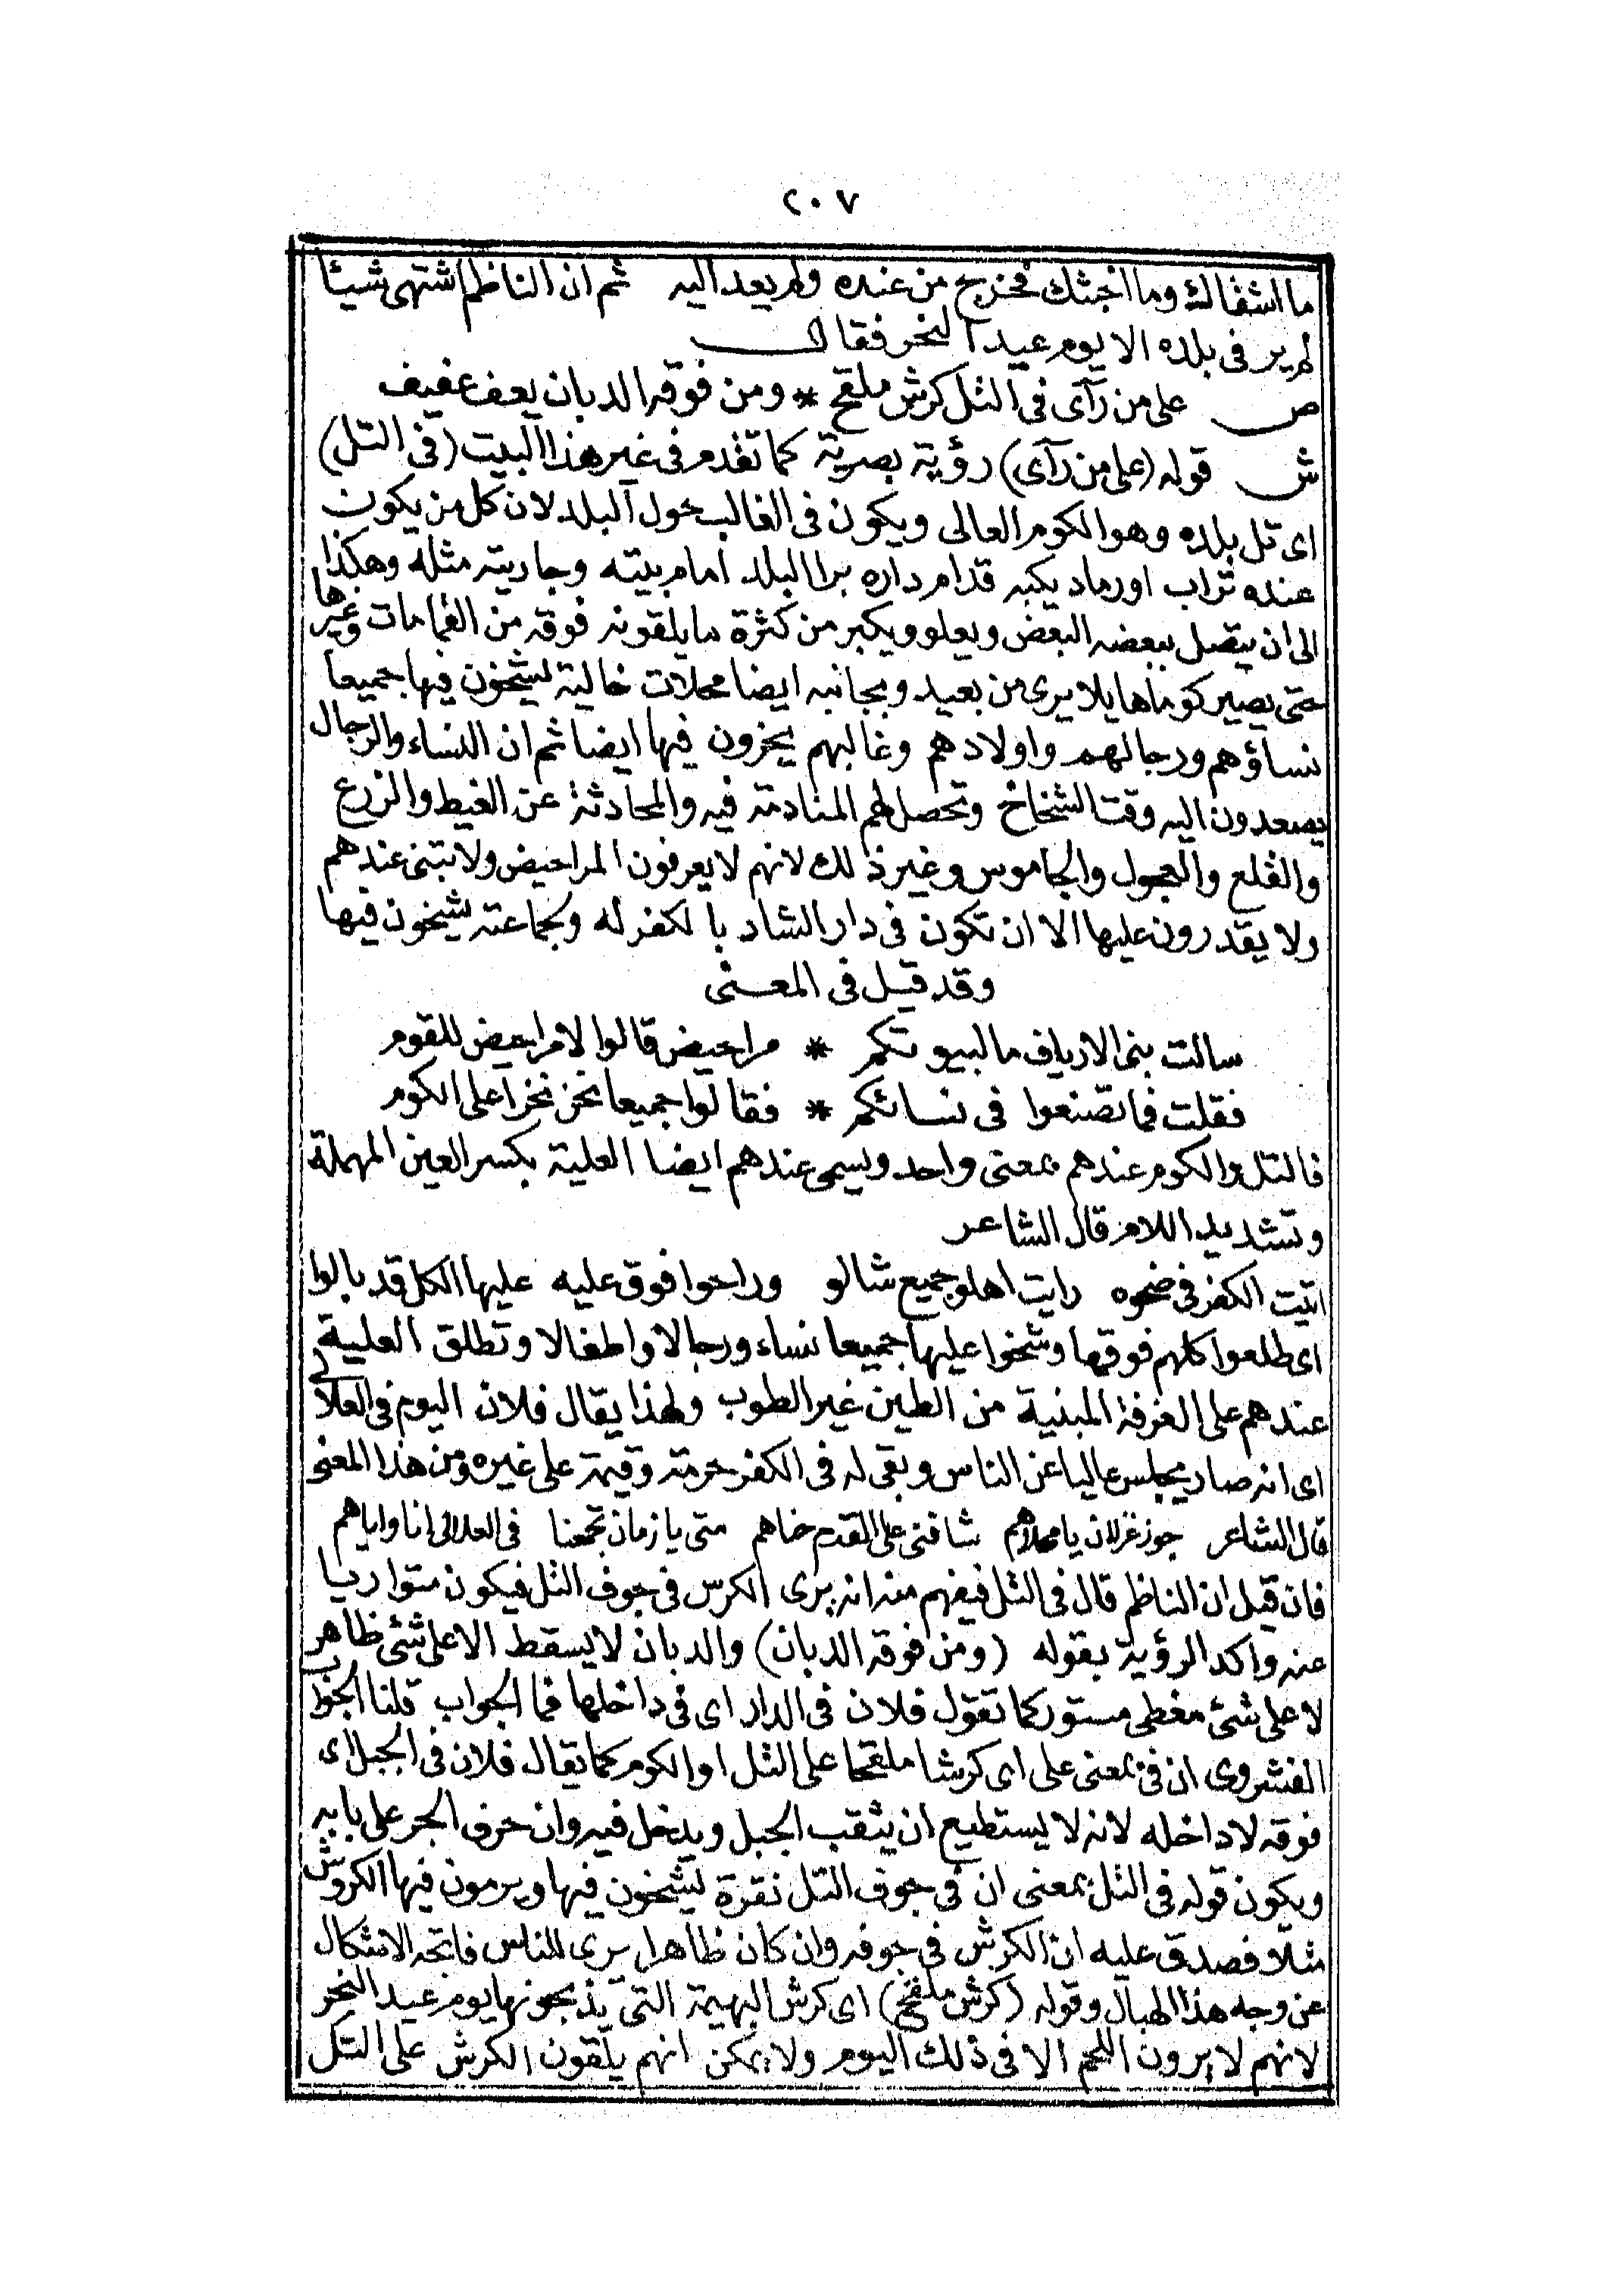 ٢٠٧
ما اشفالك وما اخبثك فخرج من عنده ولم يعد اليه ثم ان الناظم اشتهى شيئا
لم ير فى بلده الا يوم عيد النحر فقال
ص على من رآى فى التل كرش ملقح * ومن فوقه الدبان يعف عفيف
ش قوله (على من رآى) رؤية بصرية كما تقدم فى غير هذا البيت (فى التل)
اى تل بلده وهو الكوم العالى ويكون فى الغالب حول البلد لان كل من يكون
عنده تراب او رماد يكبه قدام داره برا البلد امام بيته وجاريته مثله وهكذا
الى ان يتصل ببعضه البعض ويعلو ويكبر من كثرة ما يلقونه فوقه من القمامات وغيرها
حتى يصير كوما هايلا يرى من بعيد وبجانبه ايضا محلات خالية يشخون فيها جميعا
نساؤهم ورجالهم واولادهم وغالبهم يخرون فيها ايضا ثم ان النساء والرجال
يصعدون اليه وقت الشخاخ وتحصل لهم المنادمة فيه والمحادثة عن الغيط والزرع
والقلع والعجول والجاموس وغير ذلك لانهم لا يعرفون المراحيض ولا تبنى عندهم
ولا يقدرون عليها الا ان تكون فى دار الشاد بالكفر له ولجماعته يشخون فيها
وقد قيل فى المعنى
سالت بنى الارياف ما لبيوتكم * مراحيض قالوا لا مراحيض للقوم
فقلت فما تصنعوا فى نسائكم * فقالوا جميعا نحن نخرا على الكوم
فالتل والكوم عندهم بمعنى واحد ويسمى عندهم ايضا العلية بكسر العين المهملة
وتشديد اللام قال الشاعر
اتيت الكفر فى ضحوه رايت اهلو جميع شالو وراحوا فوق عليه عليها الكل قد بالوا
اى طلعوا كلهم فوقها وشخوا عليها جميعا نساء ورجالا واطفالا وتطلق العلية
عندهم على الغرفة المبنية من الطين غير الطوب ولهذا يقال فلان اليوم فى العلالى
اى انه صار يجلس عاليا عن الناس وبقى له فى الكفر حرمة وقيمة على غيره ومن هذا المعنى
قال الشاعر جوز غزلان يا محلاهم شاقنى على القدم خماهم متى يا زمان تجمعنا فى العلالى انا واياهم
فان قيل ان الناظم قال فى التل فيفهم منه انه يرى الكرس فى جوف التل فيكون متواريا
عنه واكد الرؤية بقوله (ومن فوقه الدبان) والدبان لا يسقط الا على شئ ظاهر
لا على شئ مغطى مستور كما تقول فلان فى الدار اى فى داخلها فما الجواب قلنا الجواب
الفشروى ان فى بمعنى على اى كرشا ملقحا على التل او الكوم كما يقال فلان فى الجبل اى
فوقه لا داخله لانه لا يستطيع ان يثقب الجبل ويدخل فيه وان حرف الجر على بابه
ويكون قوله فى التل بمعنى ان فى جوف التل نقرة يشخون فيها ويرمون فيها الكروش
مثلا فصدق عليه ان الكرش فى جوفه وان كان ظاهرا يرى للناس فاتجه الاشكال
عن وجه هذا الهبال وقوله (كرش ملقح) اى كرش البهيمة التى يذبحونها يوم عيد النحر
لانهم لا يرون اللحم الا فى ذلك اليوم ولا يمكن انهم يلقون الكرش على التل